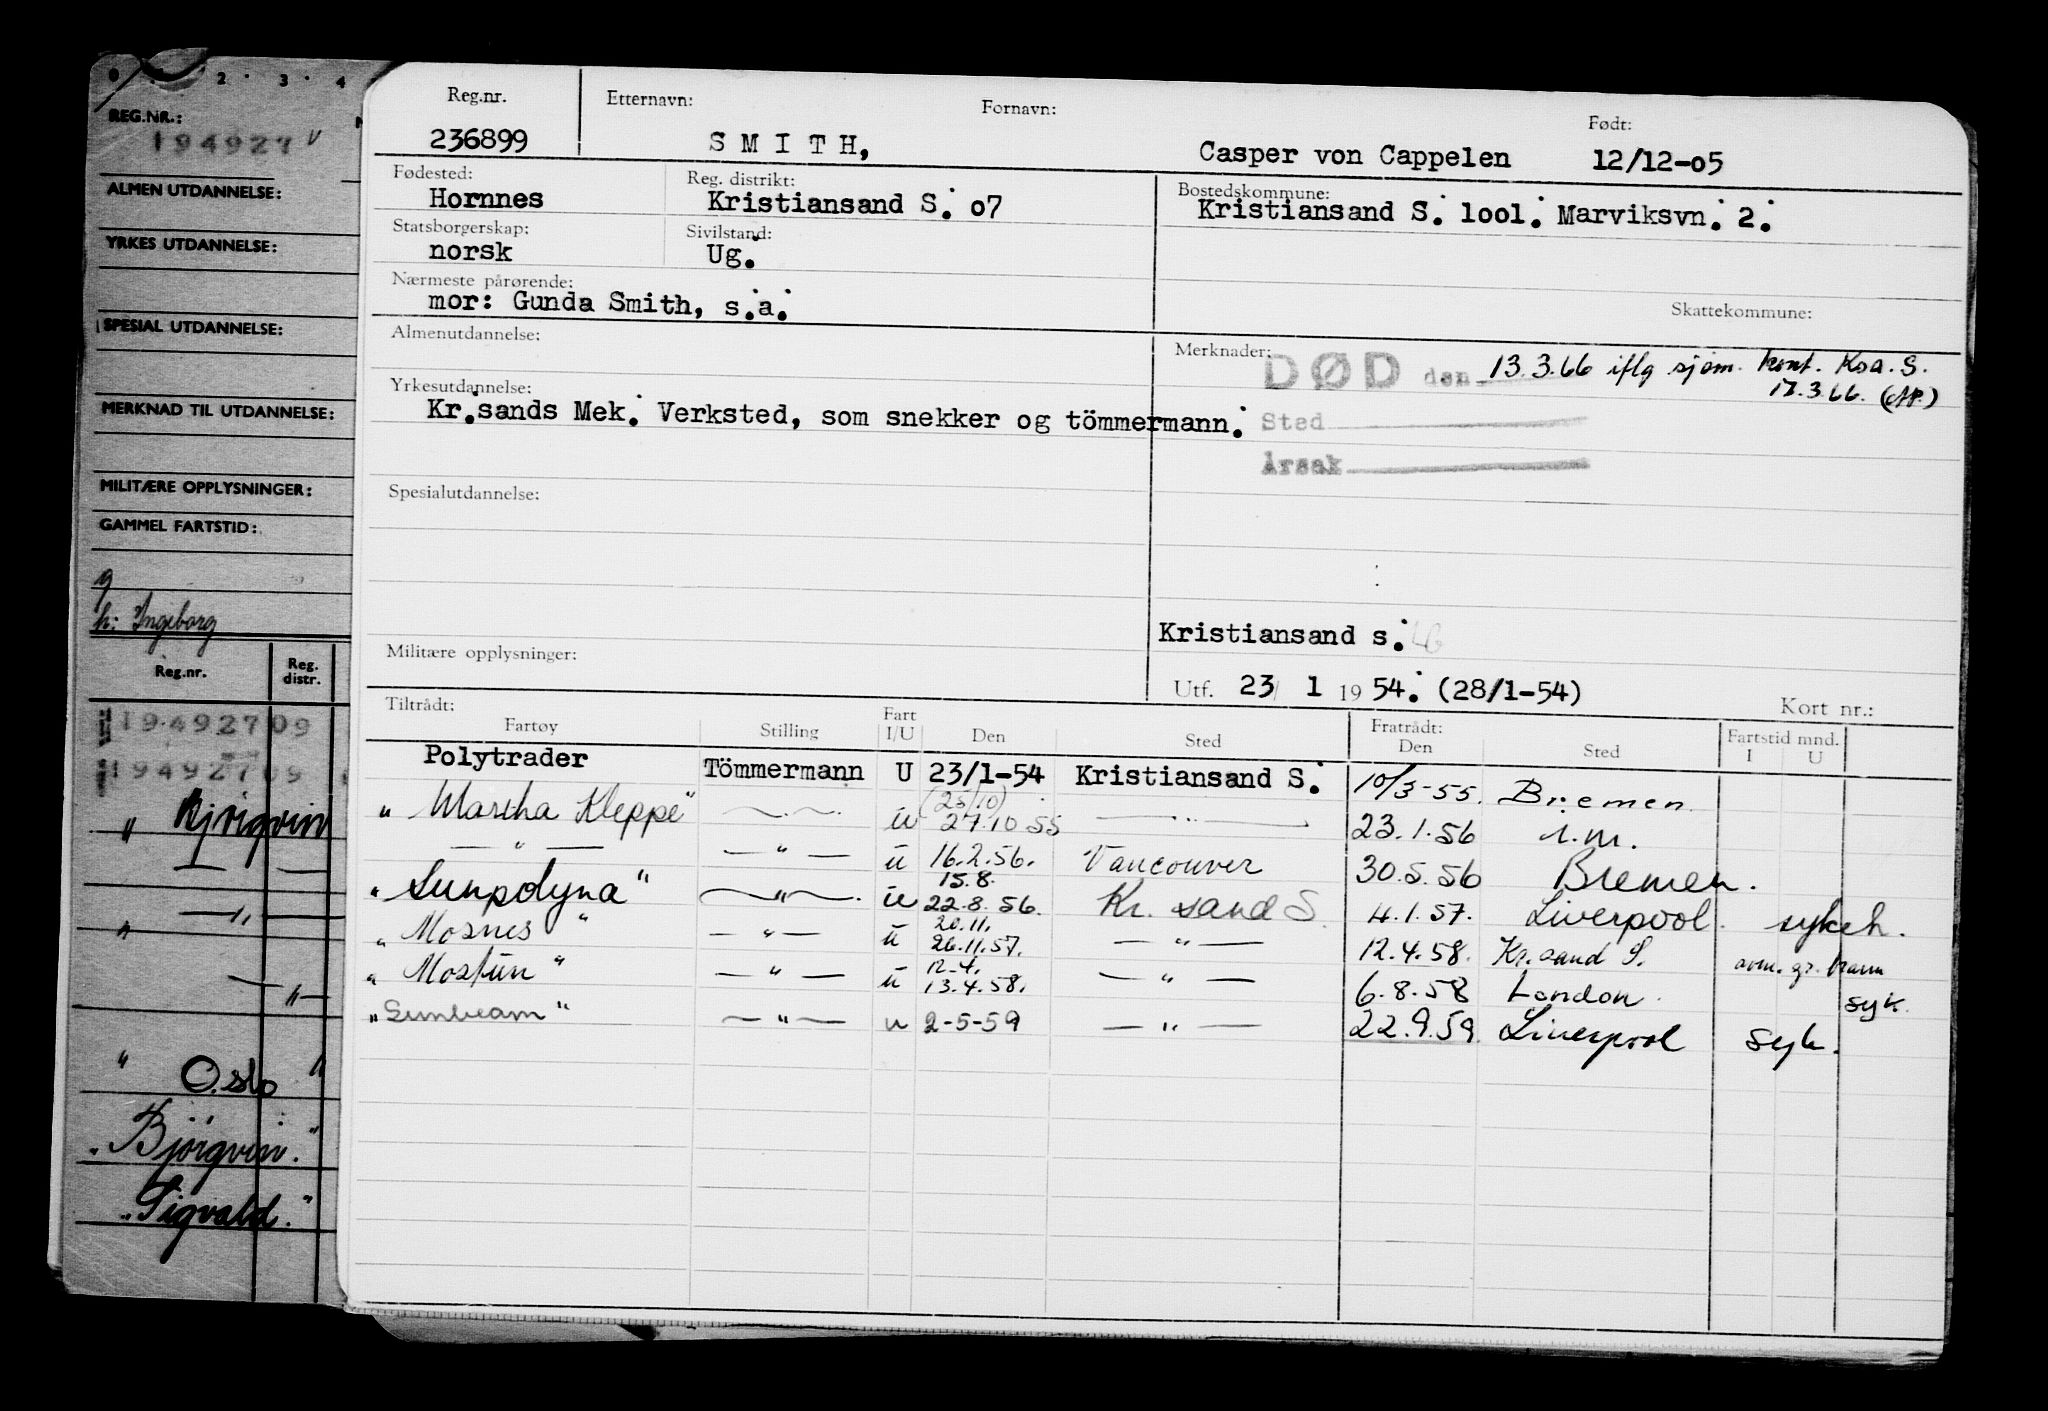 0 . 2 . 3 . 4
REG.NR.:
194927 v
ALMEN UTDANNELSE:
YRKES UTDANNELSE:
SPESIAL UTDANNELSE:
MERKNAD TIL UTDANNELSE:
MILITÆRE OPPLYSNINGER:
GAMMEL FARTSTID:
g
h: Ingeborg
Reg.nr. Reg. distr.
19492709
19492709
" Bjørgvin
— " —
" Oslo "
"Bjørgvin."
"Sigvald."
Reg.nr. Etternavn: Fornavn: Født:
236899 SMITH, Casper von Cappelen 12/12-o5
Fødested: Reg. distrikt: Bostedskommune:
Hornnes Kristiansand S. o7 Kristiansand S. lool. Marviksvn. 2.
Statsborgerskap: Sivilstand:
norsk Ug.
Nærmeste pårørende:
mor: Gunda Smith, s.a.
Skattekommune:
Almenutdannelse: Merknader:
DØD den 13.3.66 iflg sjøm. kont. Krs. S.
17.3.66. (AP.)
Yrkesutdannelse:
Kr.sands Mek. Verksted, som snekker og tömmermann.
Sted
Årsak
Spesialutdannelse:
Kristiansand s.
Militære opplysninger:
Utf. 23/ 1 1954. (28/1-54)
Kort nr.:
Tiltrådt: Fratrådt: Fartstid mnd.
Fartøy Stilling Fart I/U Den Sted Den Sted I U
Polytrader Tömmermann U 23/1-54 Kristiansand S. 10/3-55. Bremen
"Martha Kleppe" — " — u (25/10) 27.10.55 — " — 23.1.56 i.m.
— " — — " — u 16.2.56. Vancouver 30.5.56 Bremen.
"Sunpolyna" — " — u 15.8. 22.8.56. Kr. sand S. 4.1.57. Liverpool. sykeh.
"Mosnes" — " — u 20.11. 26.11.57. — " — 12.4.58. Kr.sand S.
"Mostun" — " — u 12.4. 13.4.58. — " — 6.8.58 London. syk.
"Sunbeam" — " — u 2-5-59 — " — 22.9.59. Liverpool syk.